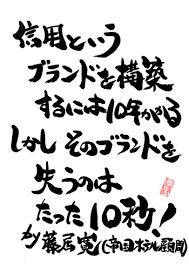 信用という
ブランドを構築
するには10年かかる
しかし そのブランドを
失うのは
たった10秒!
by 藤居寛(帝国ホテル顧問)